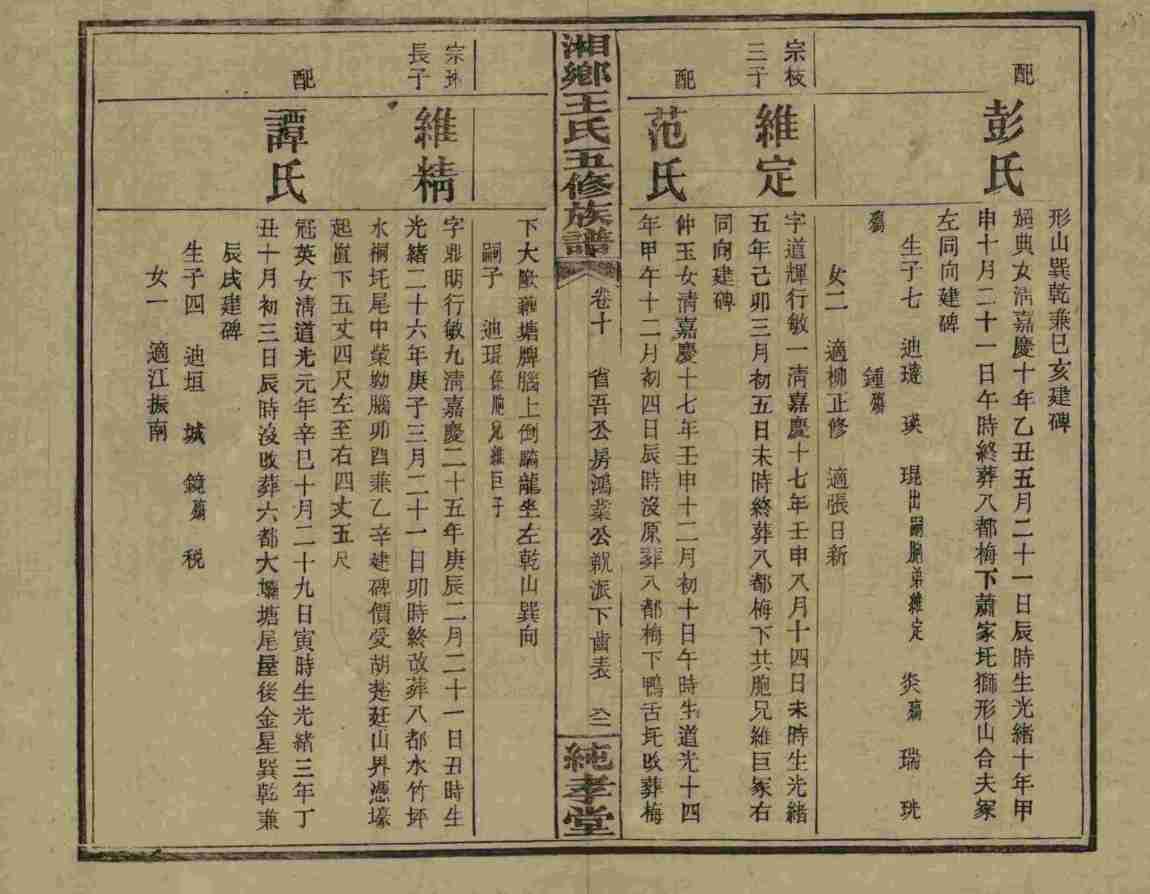 形山巽乾兼巳亥建碑
配
彭氏
典女清嘉慶十年乙丑五月二十一日辰時生光緒十年甲
申十月二十一日午時終葬八都梅下蕭家坵獅形山合夫冢
左同向建碑
生子七 迪璉 瑛 琨出嗣胞弟維定 炎殤 瑞 珖
殤
鍾殤
女二 適柳正修 適張日新
宗枝
三子
維定
字道輝行敏一清嘉慶十七年壬申八月十四日未時生光緒
五年己卯三月初五日未時終葬八都梅下共胞兄維巨冢右
同向建碑
配
范氏
仲玉女清嘉慶十七年壬申十二月初十日午時生道光十四
年甲午十二月初四日辰時沒原葬八都梅下鴨舌坵改葬梅
湘鄉王氏五修族譜
卷十
省吾公房鴻業公派下齒表
純孝堂
下大塘牌腦上倒騎龍坐左乾山巽向
嗣子 迪琨係胞兄維巨子
宗琳
長子
維精
字鼎明行敏九清嘉慶二十五年庚辰二月二十一日丑時生
光緒二十六年庚子三月二十一日卯時終改葬八都水竹坪
水桐坵尾中腦卯酉兼乙辛建碑價受胡楚廷山界憑壕
起直下五丈四尺左至右四丈五尺
配
譚氏
冠英女清道光元年辛巳十月二十九日寅時生光緒三年丁
丑十月初三日辰時沒改葬六都大塘尾屋後金星巽乾兼
辰戌建碑
生子四 迪垣 城 鏡殤 税
女一 適江振南